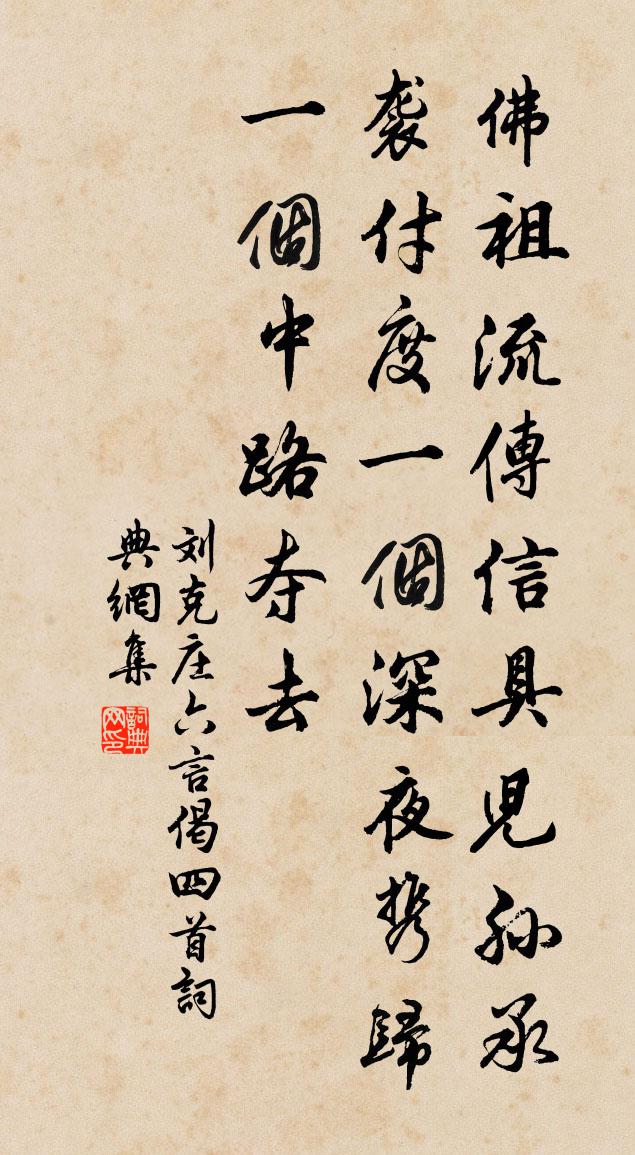 佛祖流傳信具兒孙承
袭付度一個深夜携歸
一個中路夺去
刘克庄六言偈四首詞
典網集
詞典网印